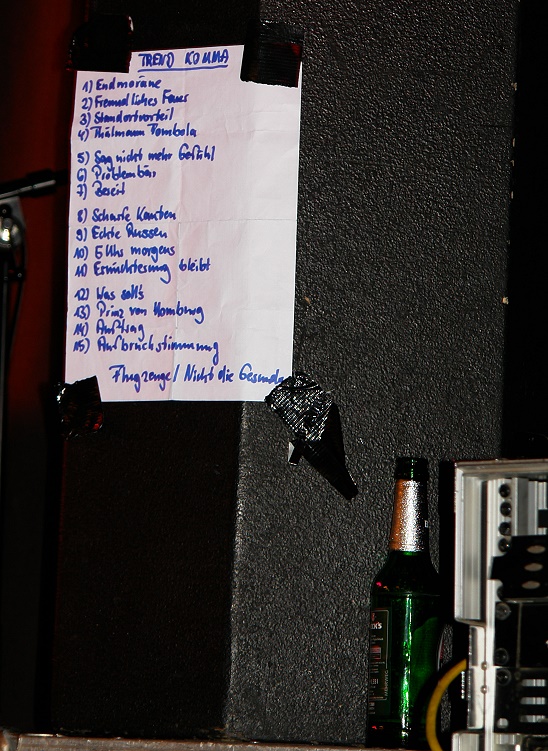 TREND KOMMA
1) Endmoräne
2) Freundliches Feuer
3) Standortvorteil
4) Thälmann Tombola
5) Sag nicht mehr Gefühl
6) Problembär
7) Bereit
8) Scharfe Kanten
9) Echte Russen
10) 5 Uhr morgens
11) Ernüchterung bleibt
12) Was soll's
13) Prinz von Homburg
14) Auftrag
15) Aufbruchstimmung
Flugzeuge / Nicht die